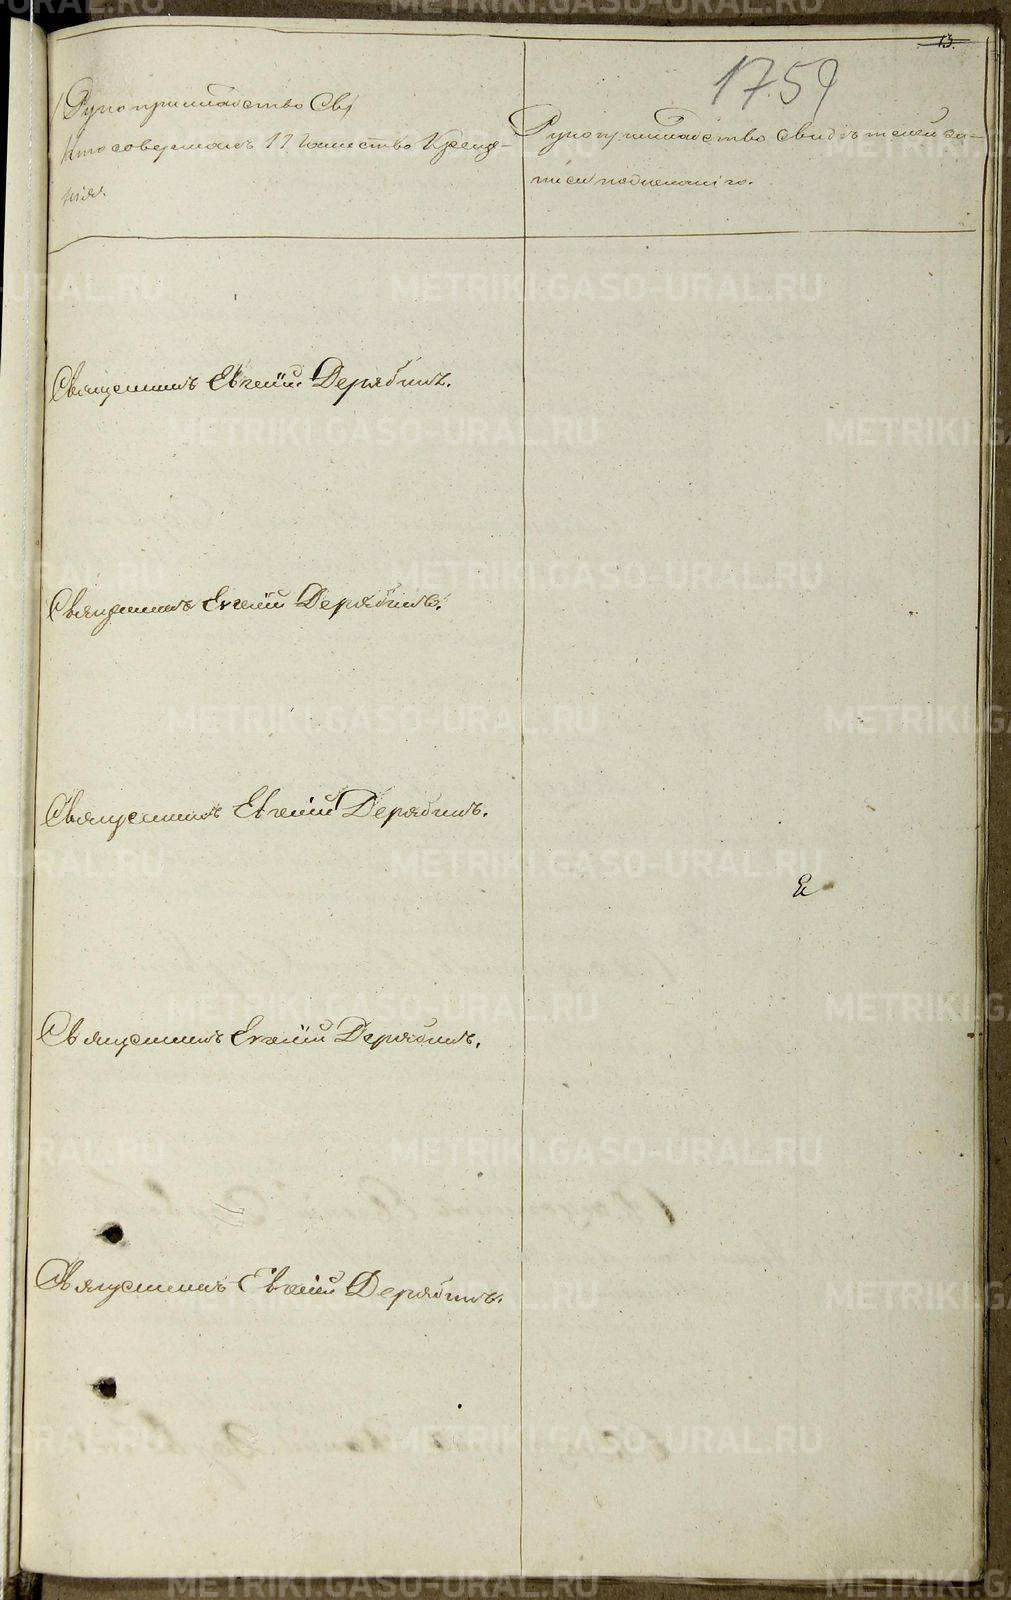 13.
1759
Рукоприкладство Св
Кто совершалъ Таинство Креще-
нія.
Рукоприкладство свидѣтелей за-
писи по желанію.
Священникъ Евгеній Дерябинъ.
Священникъ Евгеній Дерябинъ.
Священникъ Евгеній Дерябинъ.
Священникъ Евгеній Дерябинъ.
Священникъ Евгеній Дерябинъ.
METRIKI.GASO-URAL.RU